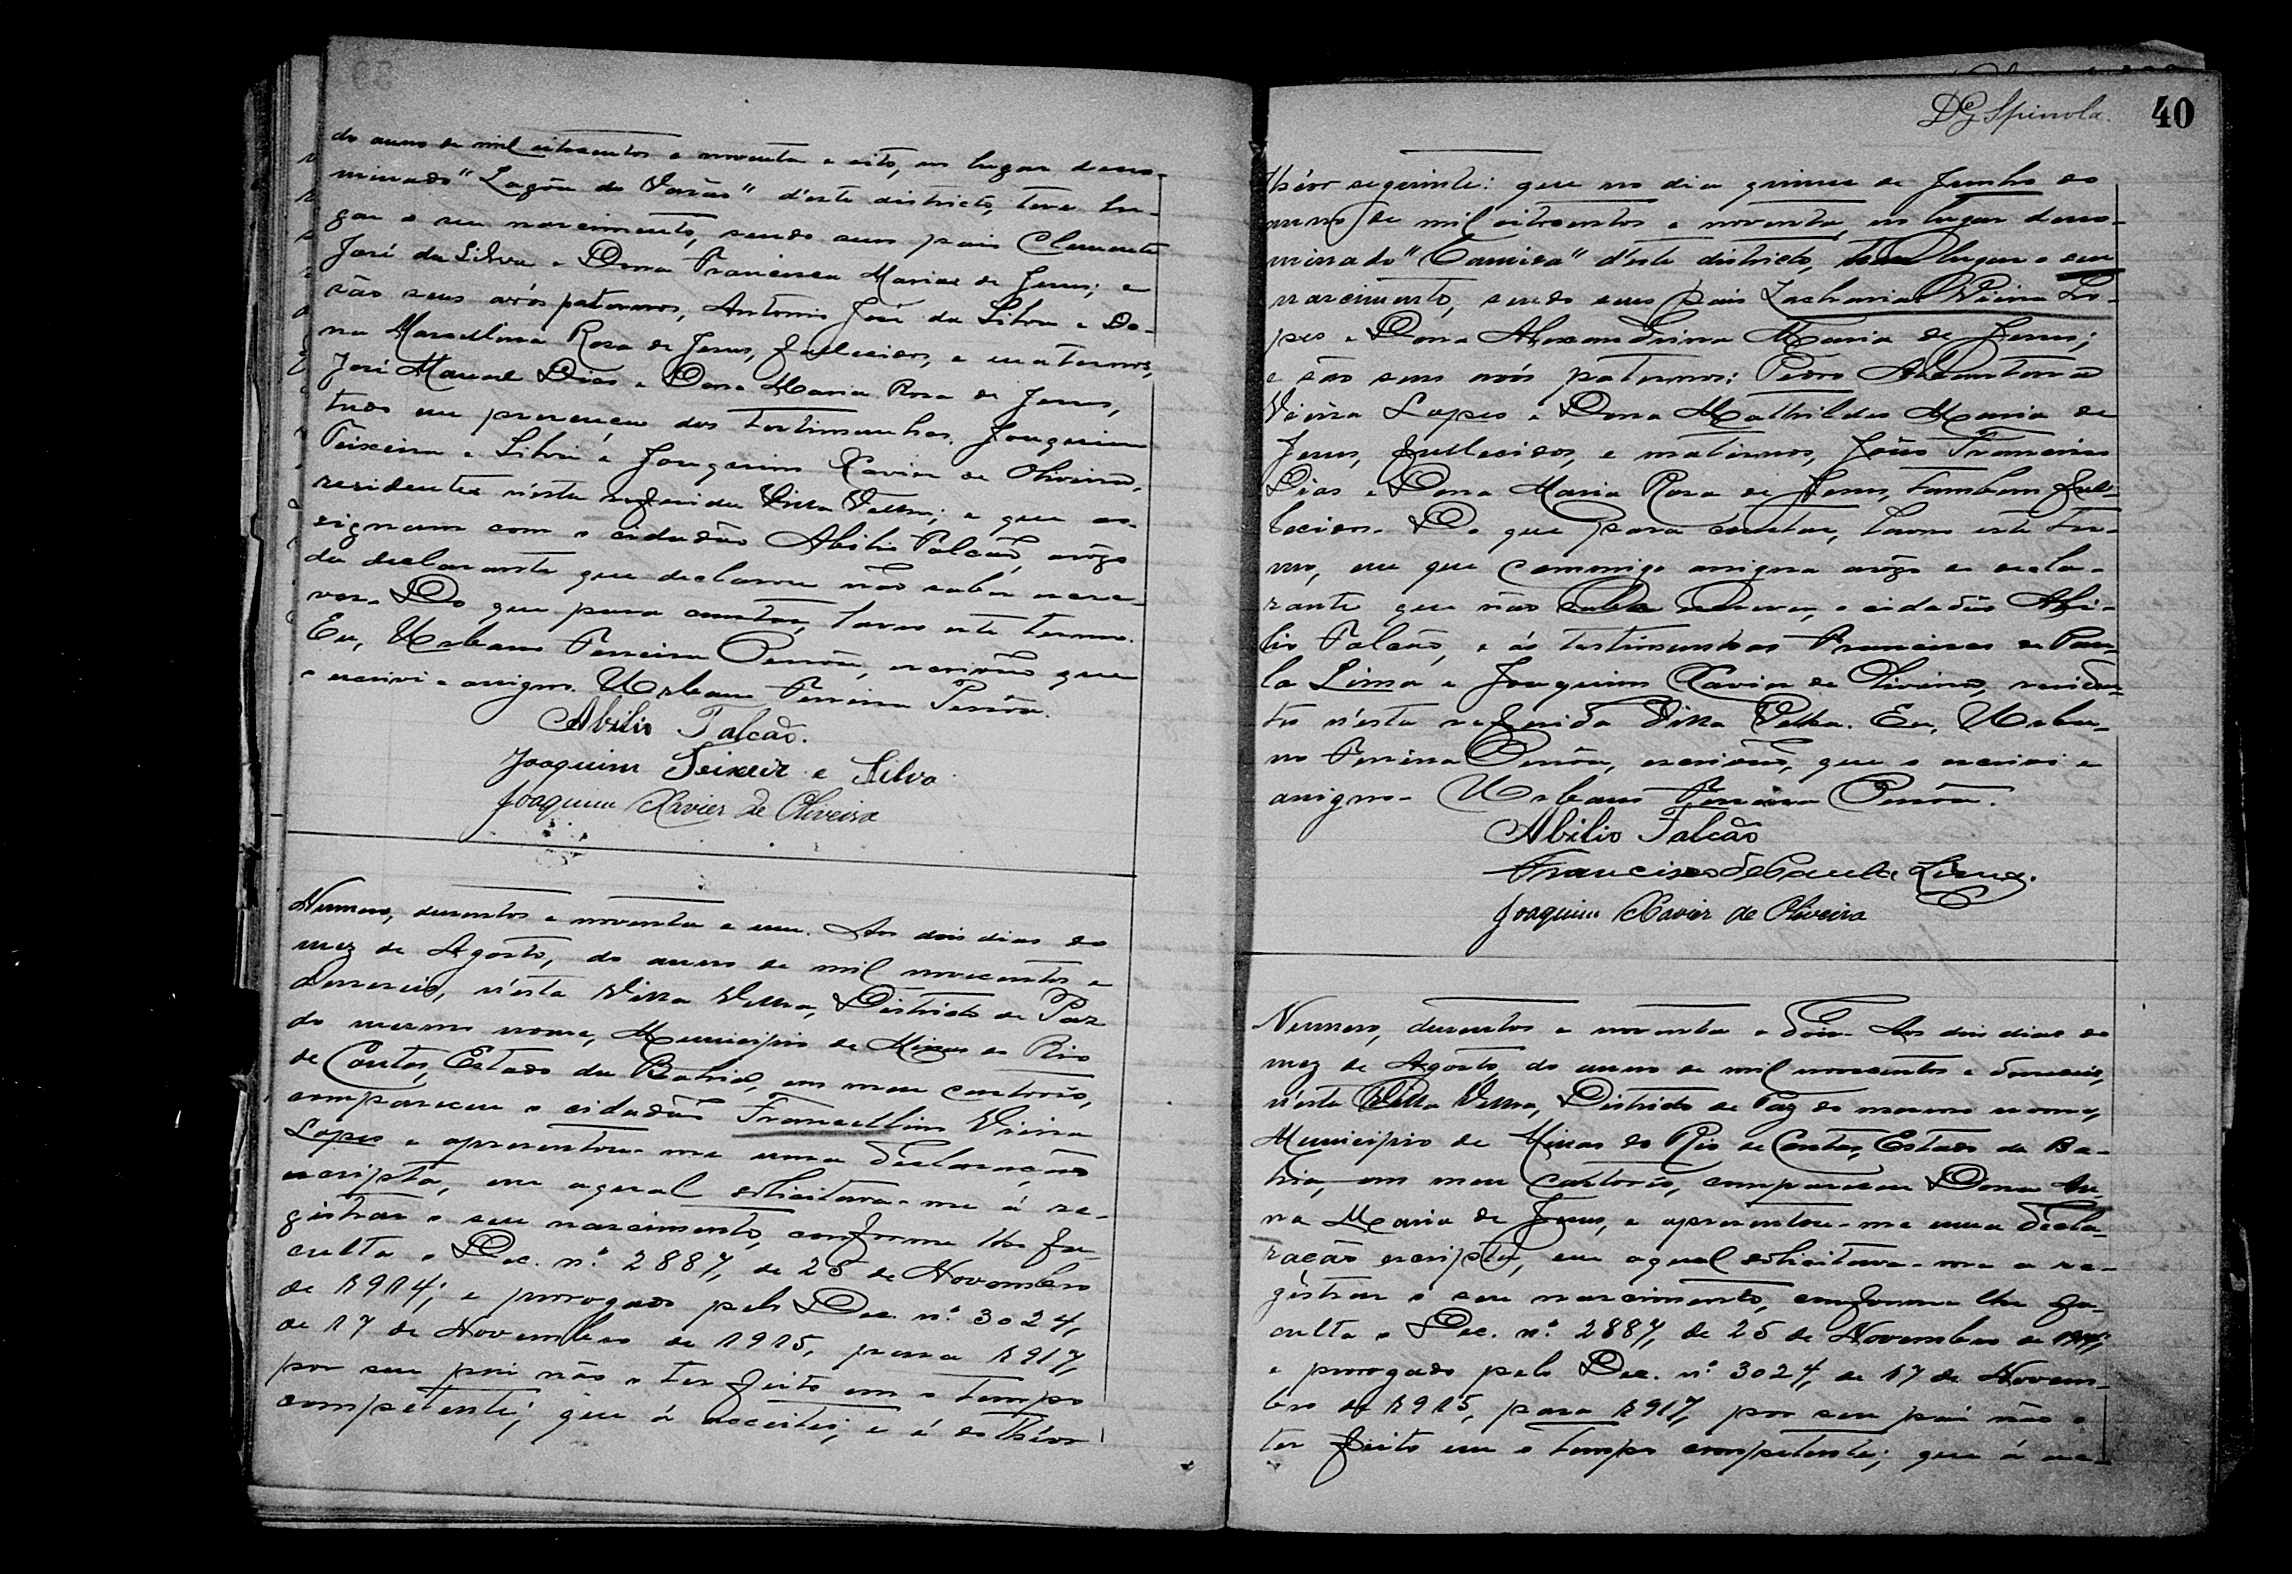 do anno de mil oitocentos e noventa e oito, no lugar deno-
minado "Lagôa do Varão" d'este districto, teve lu-
gar o seu nascimento, sendo seus pais Clemente
José da Silva e Dona Francisca Maria de Jesus; e
são seus avós paternos, Antonio José da Silva e Do-
na Marcellina Rosa de Jesus, fallecidos, e maternos,
José Manoel Dias e Dona Maria Rosa de Jesus,
tudo em presença das testimunhas, Joaquim
Teixeira e Silva e Joaquim Xavier de Oliveira,
residentes n'esta referida Villa Velha; e que as-
signam com o cidadão Abilio Falcão, arôgo
da declarante que declarou não saber escre-
ver. Do que para constar, lavro este termo.
Eu, Urbano Ferreira Penôa, escrivão que
o escrivi e assigno. Urbano Ferreira Penôa.
Abilio Falcão.
Joaquim Teixeira e Silva
Joaquim Xavier de Oliveira
Numero, duzentos e noventa e um. Aos dois dias do
mez de Agosto, do anno de mil novecentos e
deseseis, n'esta Villa Velha, Districto de Paz
do mesmo nome, Municipio de Minas do Rio
de Contas, Estado da Bahia, em meu cartorio,
compareceu o cidadão Francellino Vieira
Lopes e apresentou-me uma declaração
escripta, em a qual solicitava-me á re-
gistrar o seu nascimento, conforme lhe fa-
culta o Dec. nº. 2887, de 25 de Novembro
de 1914; e prorogado pelo Dec. nº. 3024,
de 17 de Novembro de 1915, para 1917,
por seu pai não o ter feito em o tempo
competente; que á acceitei, e é do théor
DG Spinola.
40
théor seguinte: que no dia quinze de Junho do
anno de mil oitocentos e noventa, no lugar deno-
minado "Camisa" d'este districto, teve lugar o seu
nascimento, sendo seus pais Zacharias Vieira Lo-
pes e Dona Alexandrina Maria de Jesus;
e são seus avós paternos: Pedro Alcantara
Vieira Lopes e Dona Mathildes Maria de
Jesus, fallecidos, e maternos, João Francisco
Dias e Dona Maria Rosa de Jesus, tambem fal-
lecidos. Do que para constar, lavro este ter-
mo, em que commigo assigna arôgo do decla-
rante que não sabe escrever, o cidadão Abi-
lio Falcão, e ás testimunhas Francisco de Pau-
la Lima e Joaquim Xavier de Oliveira, residen-
tes n'esta referida Villa Velha. Eu, Urba-
no Ferreira Penôa, escrivão, que o escrivi e
assigno. Urbano Ferreira Penôa.
Abilio Falcão
Francisco de Paula Lima.
Joaquim Xavier de Oliveira
Numero, duzentos e noventa e dois. Aos dois dias do
mez de Agosto, do anno de mil novecentos e deseseis,
n'esta Villa Velha, Districto de Paz do mesmo nome,
Municipio de Minas do Rio de Contas, Estado da Ba-
hia, em meu Cartorio, compareceu Dona An-
na Maria de Jesus, e apresentou-me uma decla-
ração escripta, em a qual solicitava-me a re-
gistrar o seu nascimento, conforme lhe fa-
culta o Dec. nº. 2887, de 25 de Novembro de 1914;
e prorogado pelo Dec. nº 3024, de 17 de Novem-
bro de 1915, para 1917, por seu pai não o
ter feito em o tempo competente; que á ac-